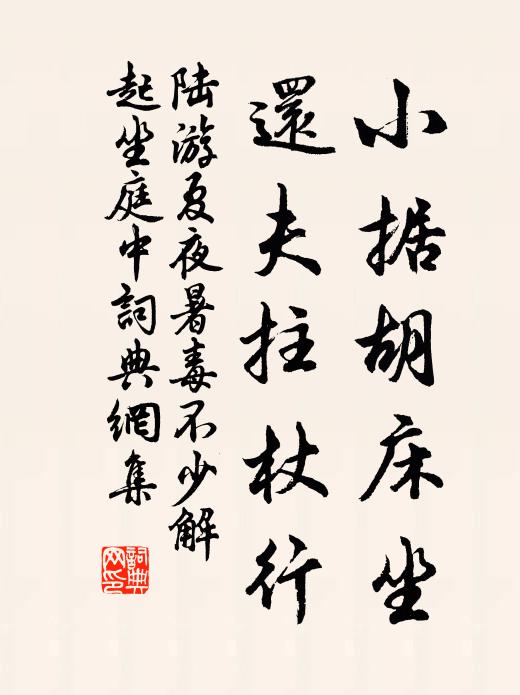 小据胡床坐
還夫拄杖行
陆游夏夜暑毒不少解
起坐庭中詞典網集
詞典网印